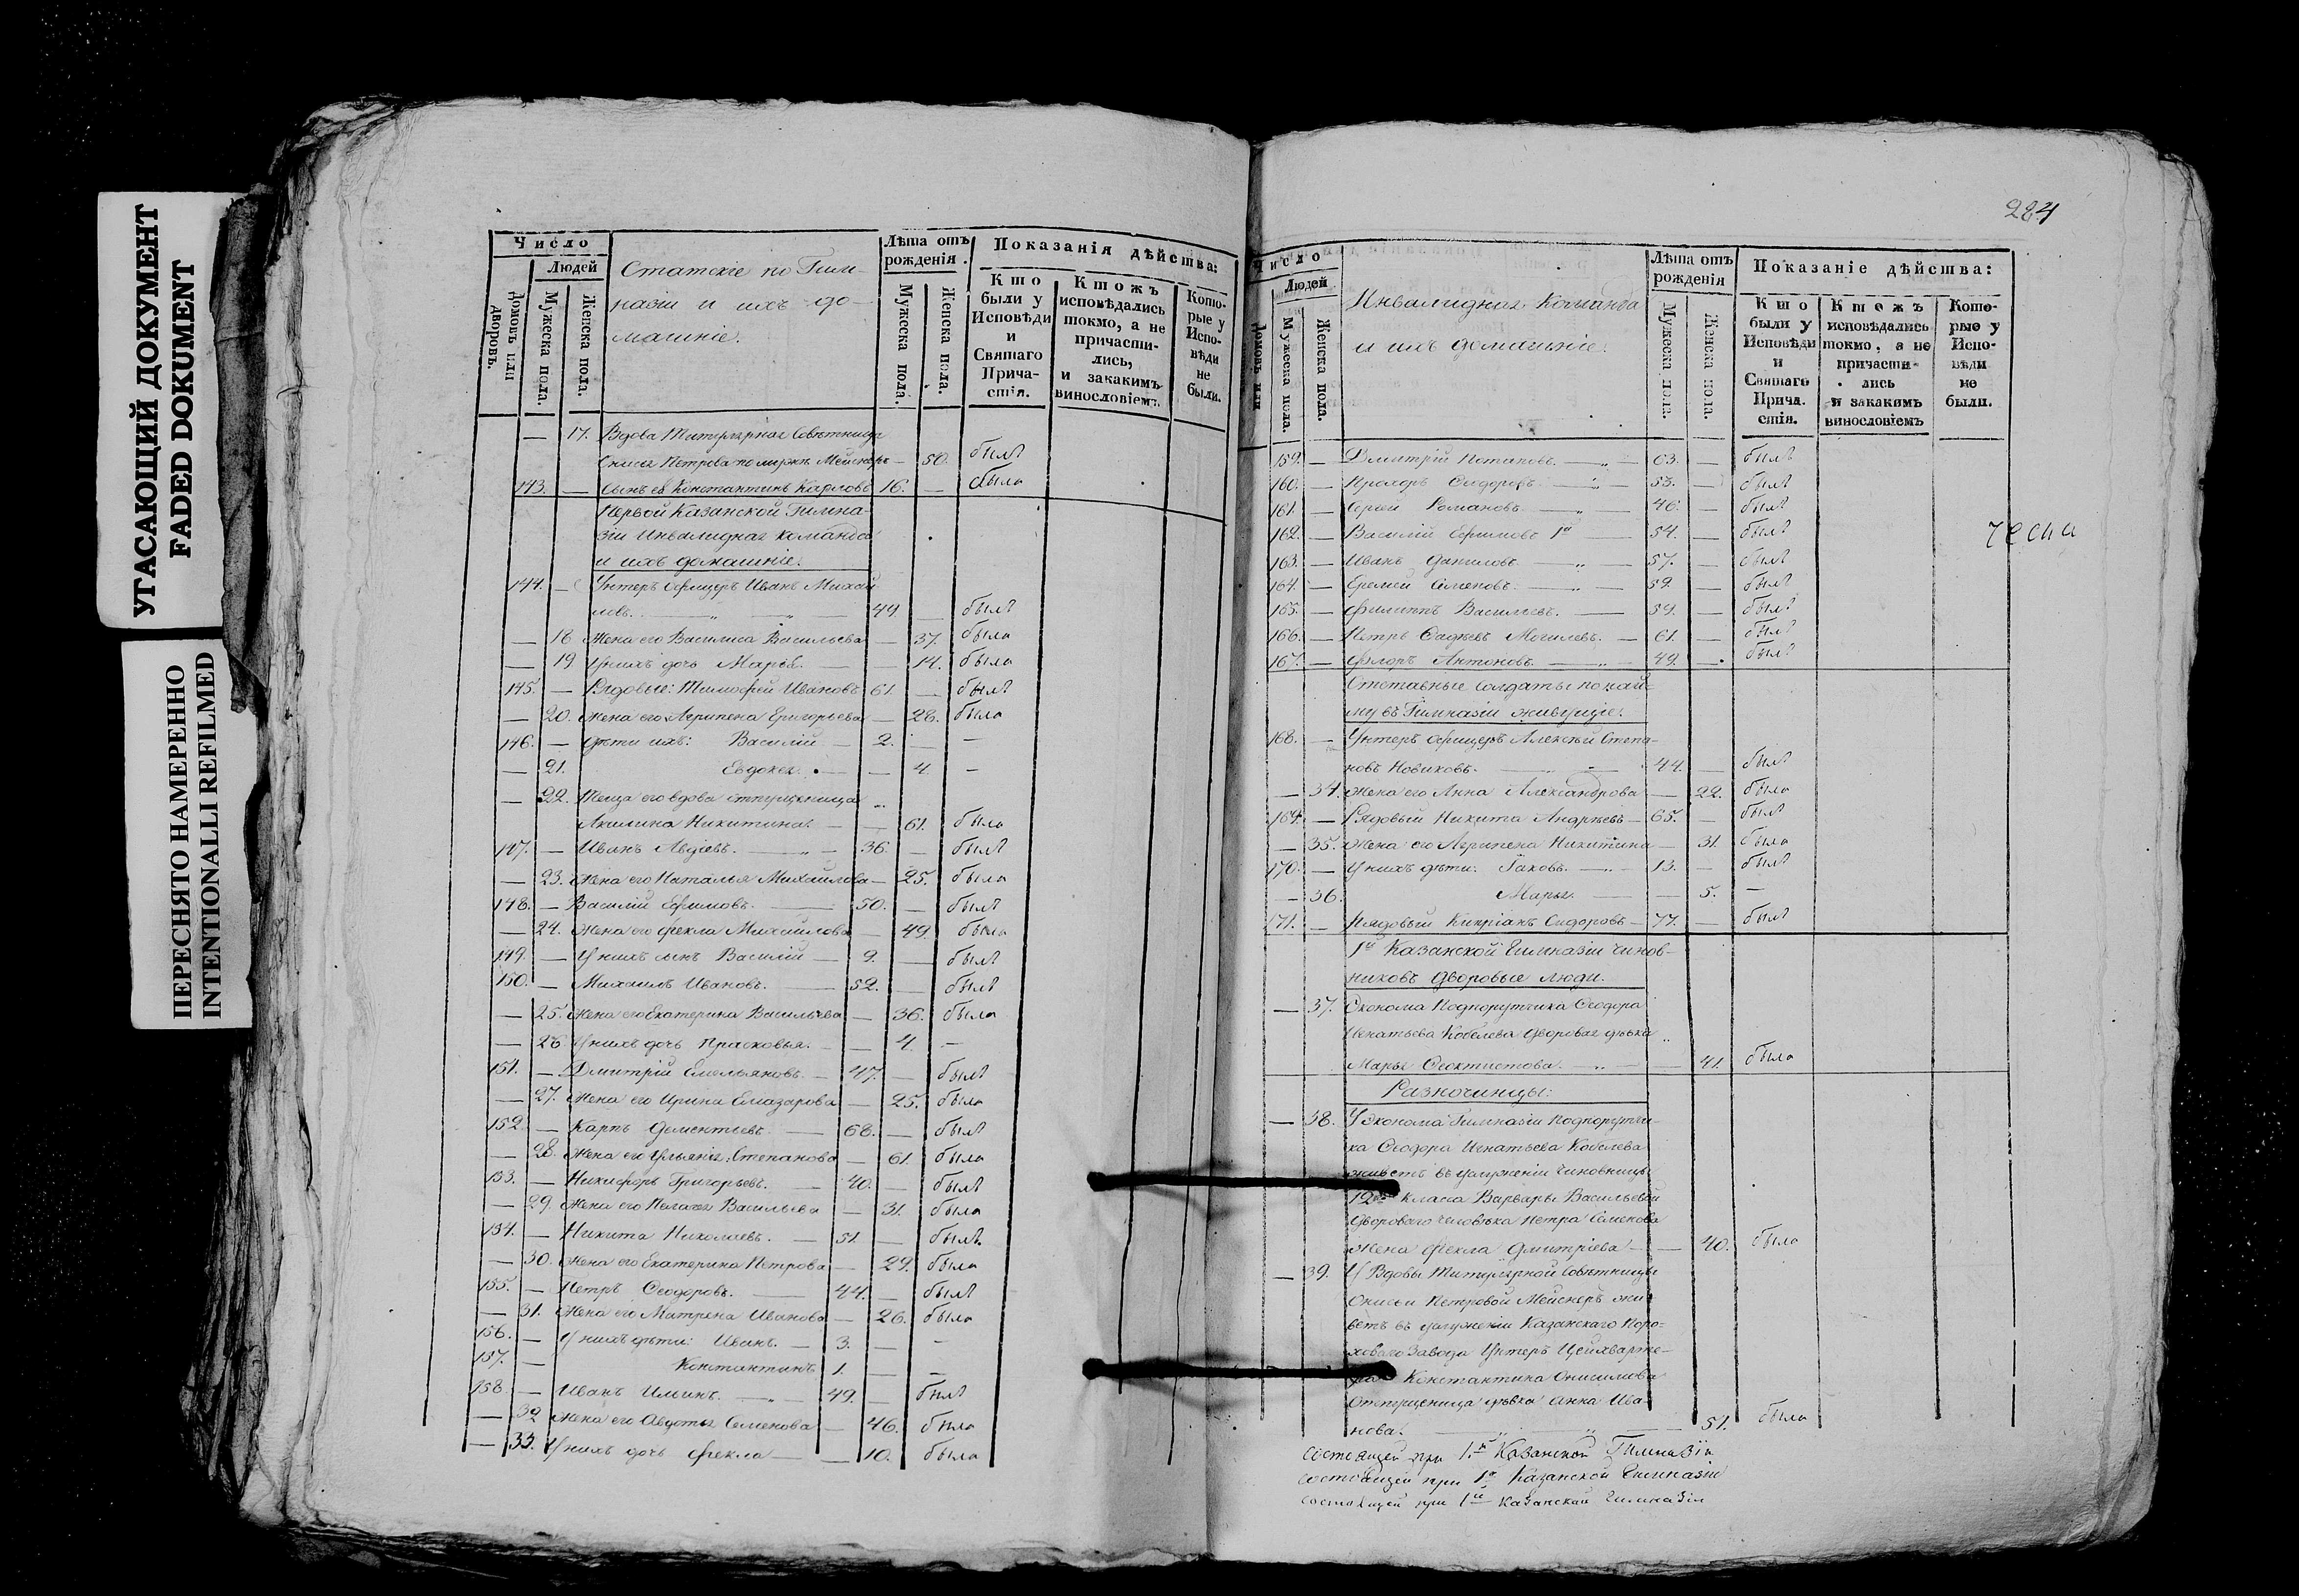 УГАСАЮЩИЙ ДОКУМЕНТ
FADED DOCUMENT
ПЕРЕСНЯТО НАМЕРЕННО
INTENTIONALLI REFILMED
Число
Людей
Домовъ или дворовъ.
Мужеска пола.
Женска пола.
Статскіе по Гим-
назіи и ихъ до-
машніе.
Лѣта отъ
рожденія.
Мужеска пола.
Женска пола.
Показанія дѣйства:
Кто
были у
Исповѣди
и
Святаго
Прича-
стія.
Ктожъ
исповѣдались
токмо, а не
причасти-
лись,
и закакимъ
винословіемъ.
Кото-
рые у
Испо-
вѣди
не
были.
— 17. Вдова Титулярная Совѣтница
Петрова Мейснеръ — 50. былъ
143. — Сынъ ея Константинъ Карловъ 16. — была
Первой Казанской Гимна-
зіи Инвалидная команда
и ихъ домашніе:
144. — Унтеръ Офицеръ Иванъ Михай
ловъ. 49. — былъ
— 18 Жена его Василиса Васильева — 37. была
— 19 У нихъ дочь Марья. — 14. была
145. — Рядовые: Тимофей Ивановъ 61. — былъ
— 20. Жена его Агрипена Григорьева — 28. была
146. — Дѣти ихъ: Василій — 2. — —
— 21. Евдокея. — 4. —
— 22. Теща его вдова отпущеница
Акилина Никитина. — 61. была
147. — Иванъ Авдіевъ. — 36. — былъ
— 23. Жена его Наталья Михайлова — 25. была
148. — Василій Ефимовъ. — 50. — былъ
— 24. Жена его Фекла Михайлова — 49. была
149. — У нихъ сынъ Василій — 9. — былъ
150. — Михаилъ Ивановъ. — 52. — былъ
— 25. Жена его Екатерина Васильева — 36. была
— 26 У нихъ дочь Прасковья. — 4. —
151. — Дмитрій Емельяновъ. — 47. — былъ
— 27. Жена его Ирина Елазарова — 25. была
152. — Карпъ Дементьевъ. — 68. — былъ
— 28. Жена его Ульяна Степанова — 61. была
153. — Никифоръ Григорьевъ. — 40. — былъ
— 29. Жена его Пелагея Васильева — 31. была
154. — Никита Николаевъ. — 51. — былъ
— 30. Жена его Екатерина Петрова — 29. была
155. — Петръ Ѳеодоровъ. — 44. — былъ
— 31. Жена его Матрена Иванова — 26. была
156. — У нихъ дѣти: Иванъ. — 3. — —
157. — Константинъ 1. — —
158. — Иванъ Ильинъ. — 49. — былъ
— 32 Жена его Авдотья Семенова — 46. была
— 33. У нихъ дочь Фекла — 10. была
284
Число
Людей
Домовъ или
Мужеска пола.
Женска пола.
Инвалидная Команда
и ихъ домашніе.
Лѣта отъ
рожденія
Мужеска пола.
Женска пола.
Показаніе дѣйства:
Кто
были у
Исповѣди
и
Святаго
Прича-
стія.
Ктожъ
исповѣдались
токмо, а не
причасти-
лись
и закакимъ
винословіемъ
Кото-
рые у
Испо-
вѣди
не
были.
159. — Дмитрій Потаповъ. — 63. — былъ
160. — Прохоръ Сидоровъ. — 53. — былъ
161. — Сергей Романовъ — 46. — былъ
162. — Василій Ефимовъ 1й — 54. — былъ
163. — Иванъ Даниловъ. — 57. — былъ
164. — Еремей Семеновъ. — 59. — былъ
165. — Филиппъ Васильевъ. — 59. — былъ
166. — Петръ Могилевъ. — 61. — былъ
167. — Флоръ Антоновъ. — 49. — былъ
Отставные солдаты по най-
му въ Гимназіи живущіе.
168. — Унтеръ Офицеръ Алексей Степа-
новъ Новиковъ. — 44. — былъ
— 34. Жена его Анна Александрова — 22. была
169. — Рядовый Никита Андреевъ — 65. — былъ
— 35. Жена его Агрипена Никитина — 31. была
170. — У нихъ дѣти: Іаковъ. — 13. — былъ
— 36. Марья. — 5. —
171. — Рядовый Кипріанъ Сидоровъ — 77. — былъ
1й Казанской Гимназіи чинов-
никовъ дворовые люди.
— 37. Эконома Подпорутчика Ѳеодора
Игнатьева Кобелева дворовая дѣвка
Марья Ѳеоктистова. — 41. была
Разночинцы:
— 38. У Эконома Гимназіи Подпорутчи-
ка Ѳеодора Игнатьева Кобелева
живетъ въ услуженіи чиновницы
12го класса Варвары Васильевой
двороваго человѣка Петра Семенова
жена Фекла Дмитріева — 40. была
— 39. У Вдовы Титулярной Совѣтницы
Петровой Мейснеръ жи-
ветъ въ услуженіи Казанскаго Поро-
ховаго Завода Унтеръ Цейхварте-
ра Константина Онисимова
отпущеница дѣвка Анна Ива-
нова. — 51. была
Состоящей при 1й Казанской Гимназіи
состоящей при 1й Казанской Гимназіи
состоящей при 1й Казанской Гимназіи